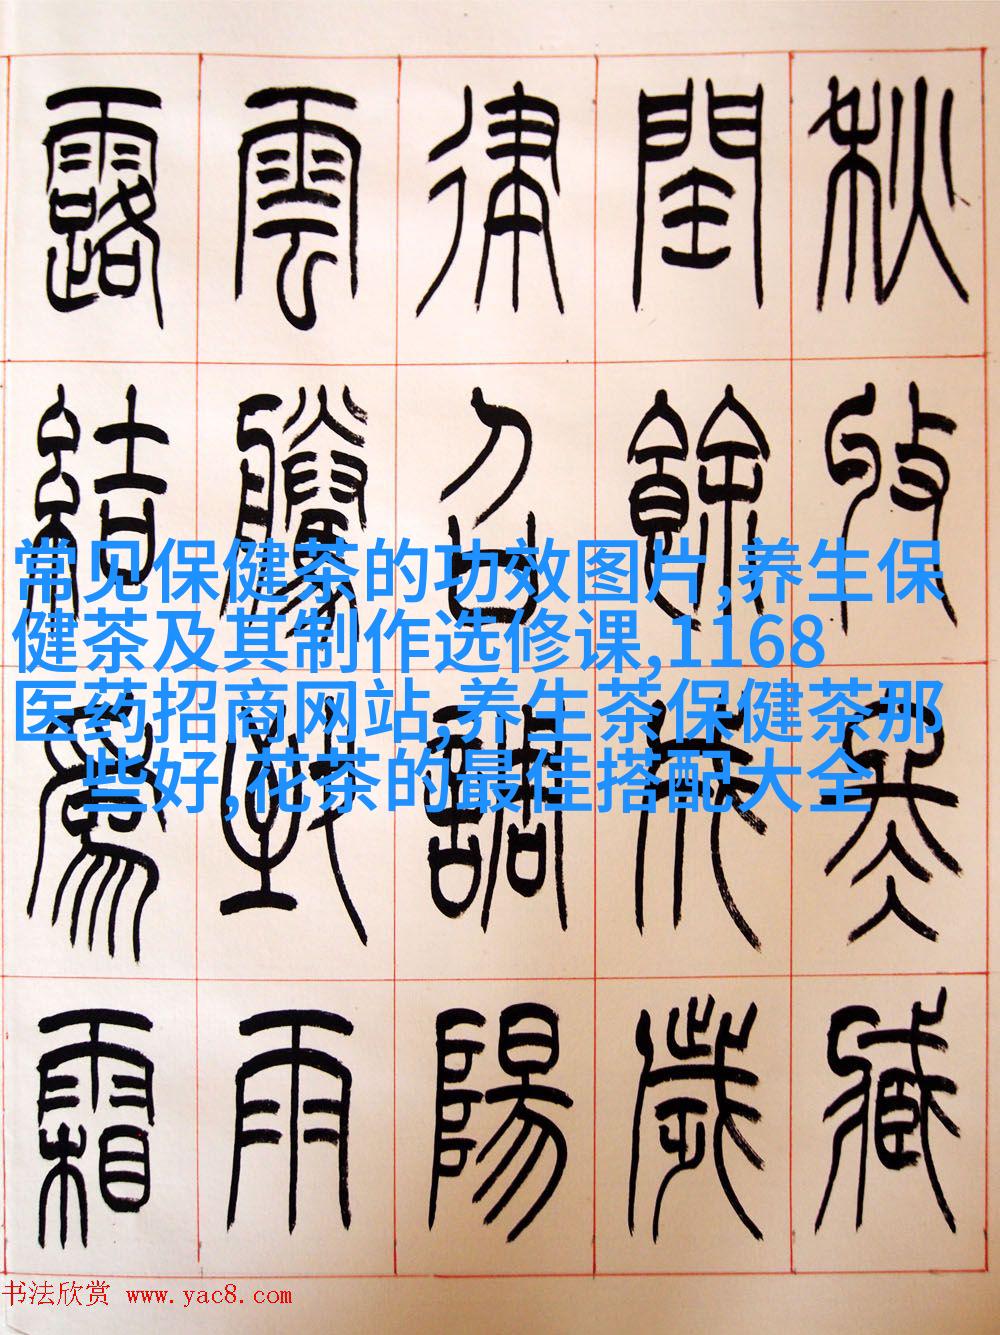 秋收冬臧
閏餘成歲
律召調陽
雲騰致雨
露結爲霜
常见保健茶的功效图片,养生保
健茶及其制作选修课,1168
医药招商网站,养生茶保健茶那
些好,花茶的最佳搭配大全
书法欣赏 www.yac8.com